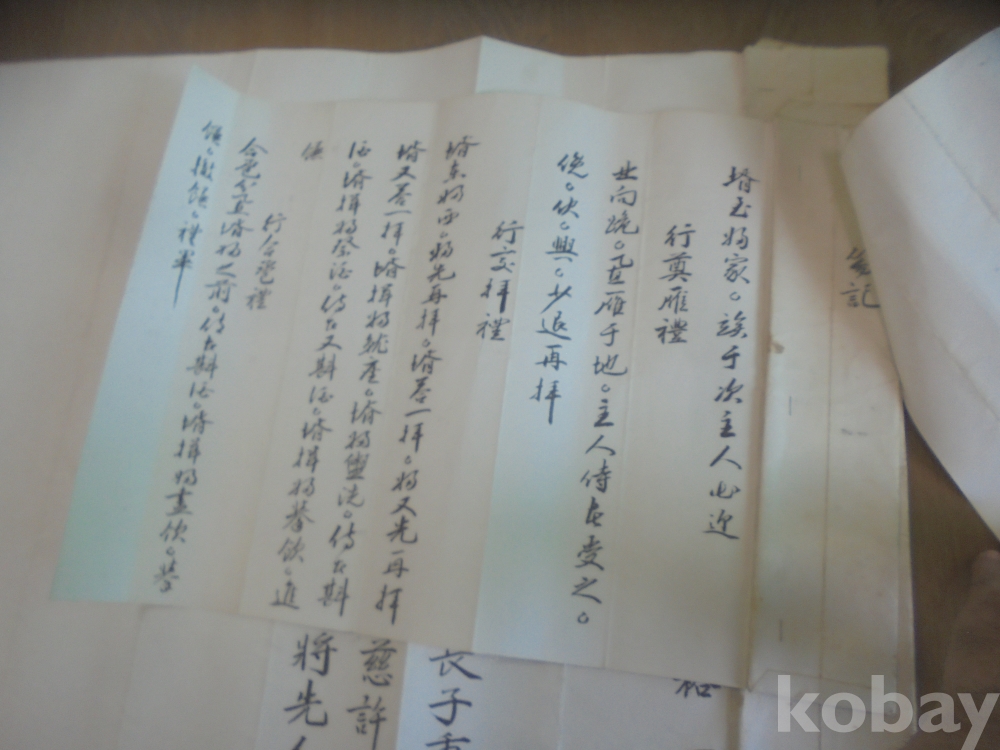 笏記
壻至婦家。竢于次主人出迎
行奠雁禮
北向跪。置雁于地。主人侍者受之。
俛。伏。興。少退再拜
行交拜禮
壻東婦西。婦先再拜。壻答一拜。婦又先再拜
壻又答一拜。壻揖婦就座。壻婦盥洗。侍者斟
酒。壻揖婦祭酒。侍者又斟酒。壻揖婦擧飮。進
饌
行合巹禮
合巹分置壻婦之前。侍者斟酒。壻揖婦盡飮。擧
饌。撤饌。禮畢
長子
慈許
將先
kobay